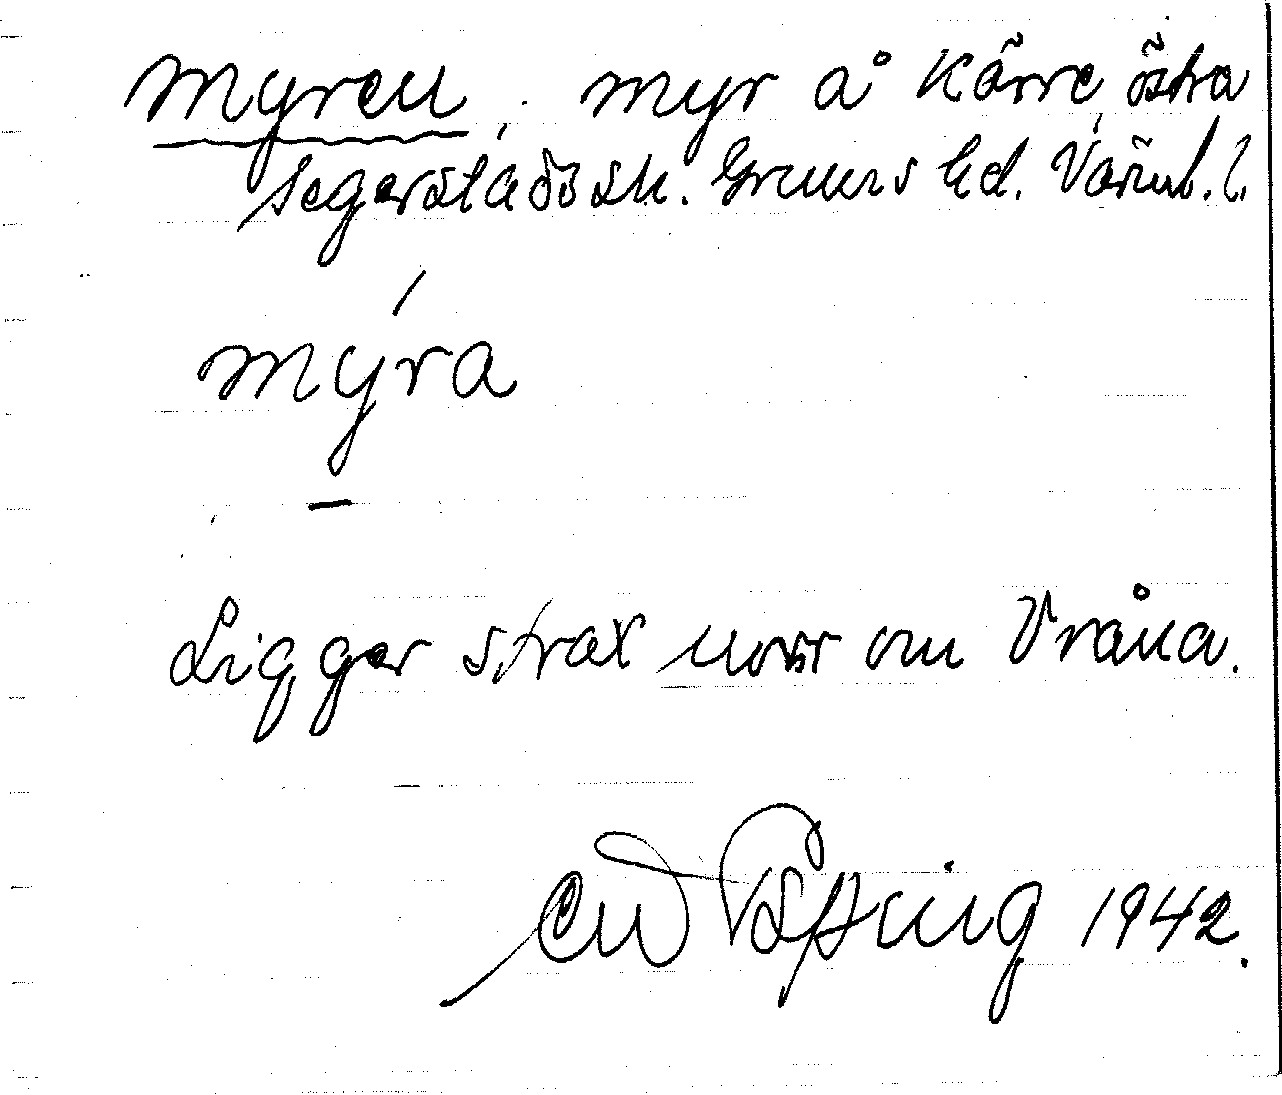 Myren, myr å Kärre, östra
Segerstads sn. Grums hd. Värml. l.
mýra
Ligger strax norr om Vråna.
1942.